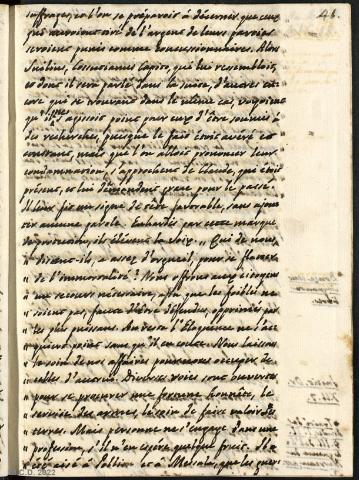 41.
suffrages, et l'on se préparoit à décerner que ceux
qui auroient tiré de l'argent de leurs parties
seroient punis comme concussionnaires. Alors
Suilius, Cossutianus Capito, qui lui ressembloit,
et dont il sera parlé dans la suite, d'autres en-
core qui se trouvoient dans le même cas, voyoient
qu'il ne s'agissoit point pour eux d'être soumis à
des recherches, puisque le fait étoit avéré et
constant, mais que l'on alloit prononcer leur
condamnation, s'approchent de Claude, qui étoit
présent, et lui demandent grace pour le passé.
Il leur fit un signe de tête favorable, sans ajou-
ter aucune parole. Enhardis par cette marque
de protection, ils élèvent la voix. " Qui de nous,
" disent-ils, a assez d'orgueil, pour se flatter
" de l'immortalité? Nous offrons aux citoyens
" un recours nécessaire, afin que les foibles ne
" soient pas, faute d'être défendus, opprimés par
" les plus puissans. Au reste l'Eloquence ne s'ac-
" quiert point sans qu'il en coute. Nous laissons
" le soin de nos affaires pour nous occuper de
" celles d'autrui. Diverses voies sont ouvertes
" pour se procurer une fortune honnête, le
" service des armes, le soin de faire valoir des
" terres. Mais personne ne s'engage dans une
" profession, s'il n'en espère quelque fruit. Il a
" été aisé à Pollion et à Messala, que les guer-
C.D. 2022